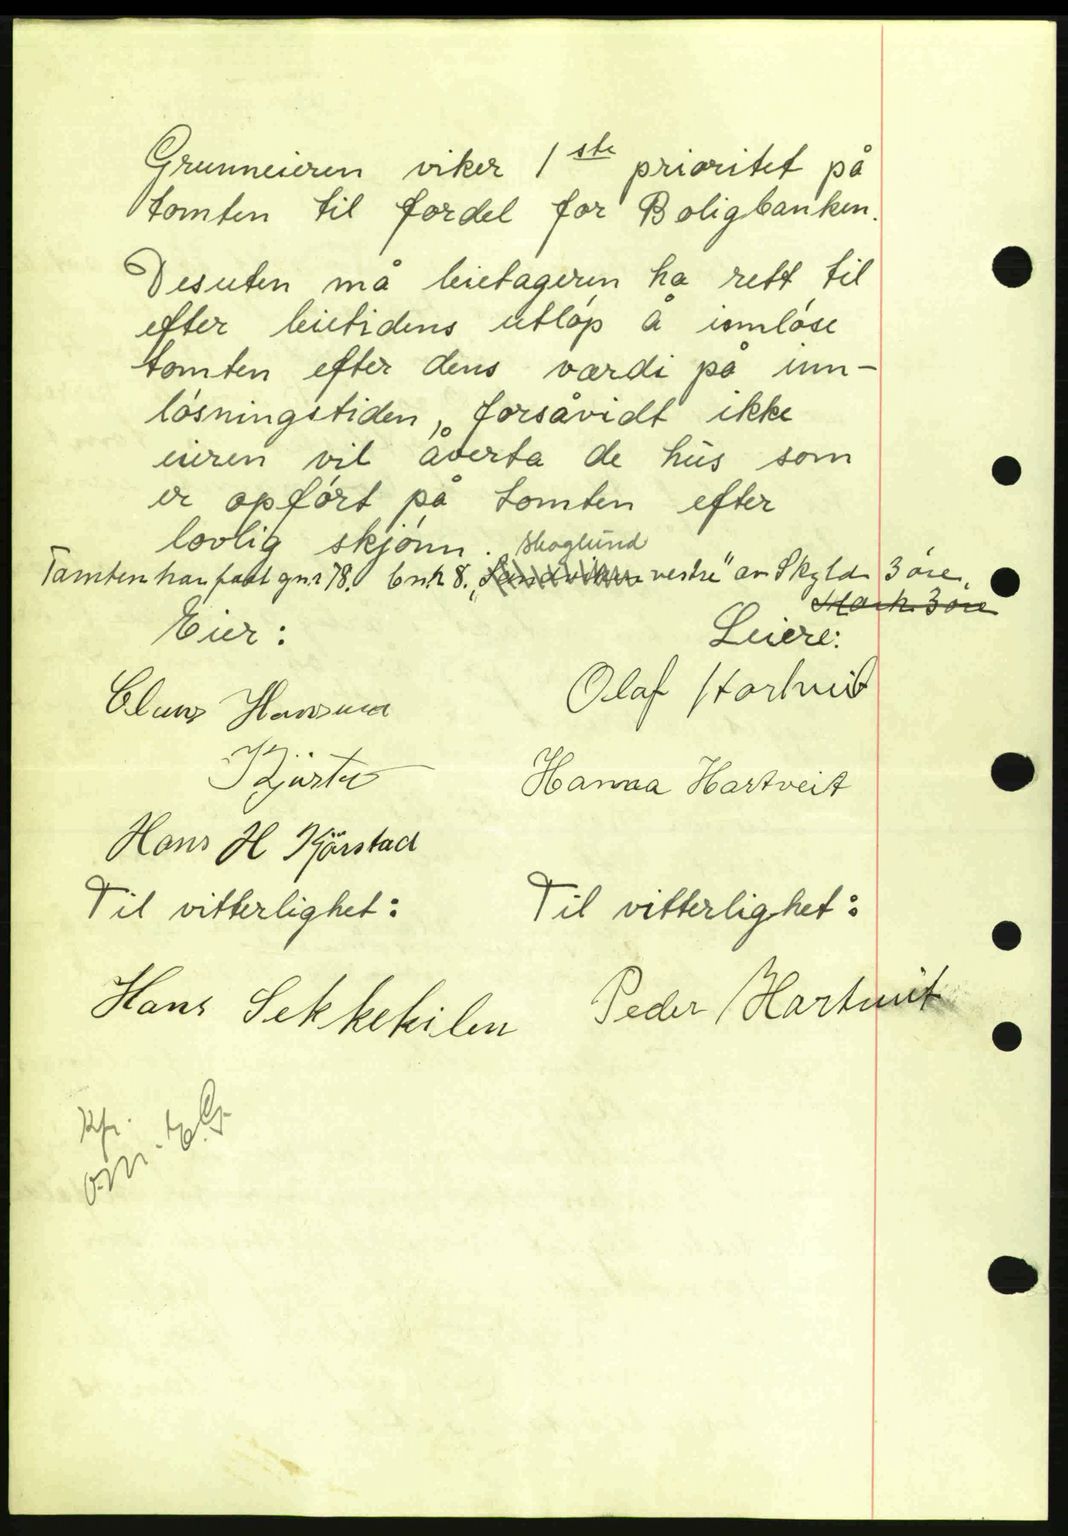 Grunneieren viker 1ste prioritet på
tomten til fordel for Boligbanken.
Desuten må leietageren ha rett til
efter leietidens utløp å innløse
tomten efter dens værdi på inn-
løsningstiden, forsåvidt ikke
eieren vil åverta de hus som
er opført på tomten efter
lovlig skjønn.
Skoglund
Tomten har fått gnr 78. bnr. 8. „Sandviken vestre" av Skyld 3 øre.
Mark 3 øre
Eier:
Leiere:
Claus Hansen
Olaf Hartveit
Hanna Hartveit
Hans H Kjørstad
Til vitterlighet:
Til vitterlighet:
Hans Sekkekilen
Peder Hartveit
Kfr.